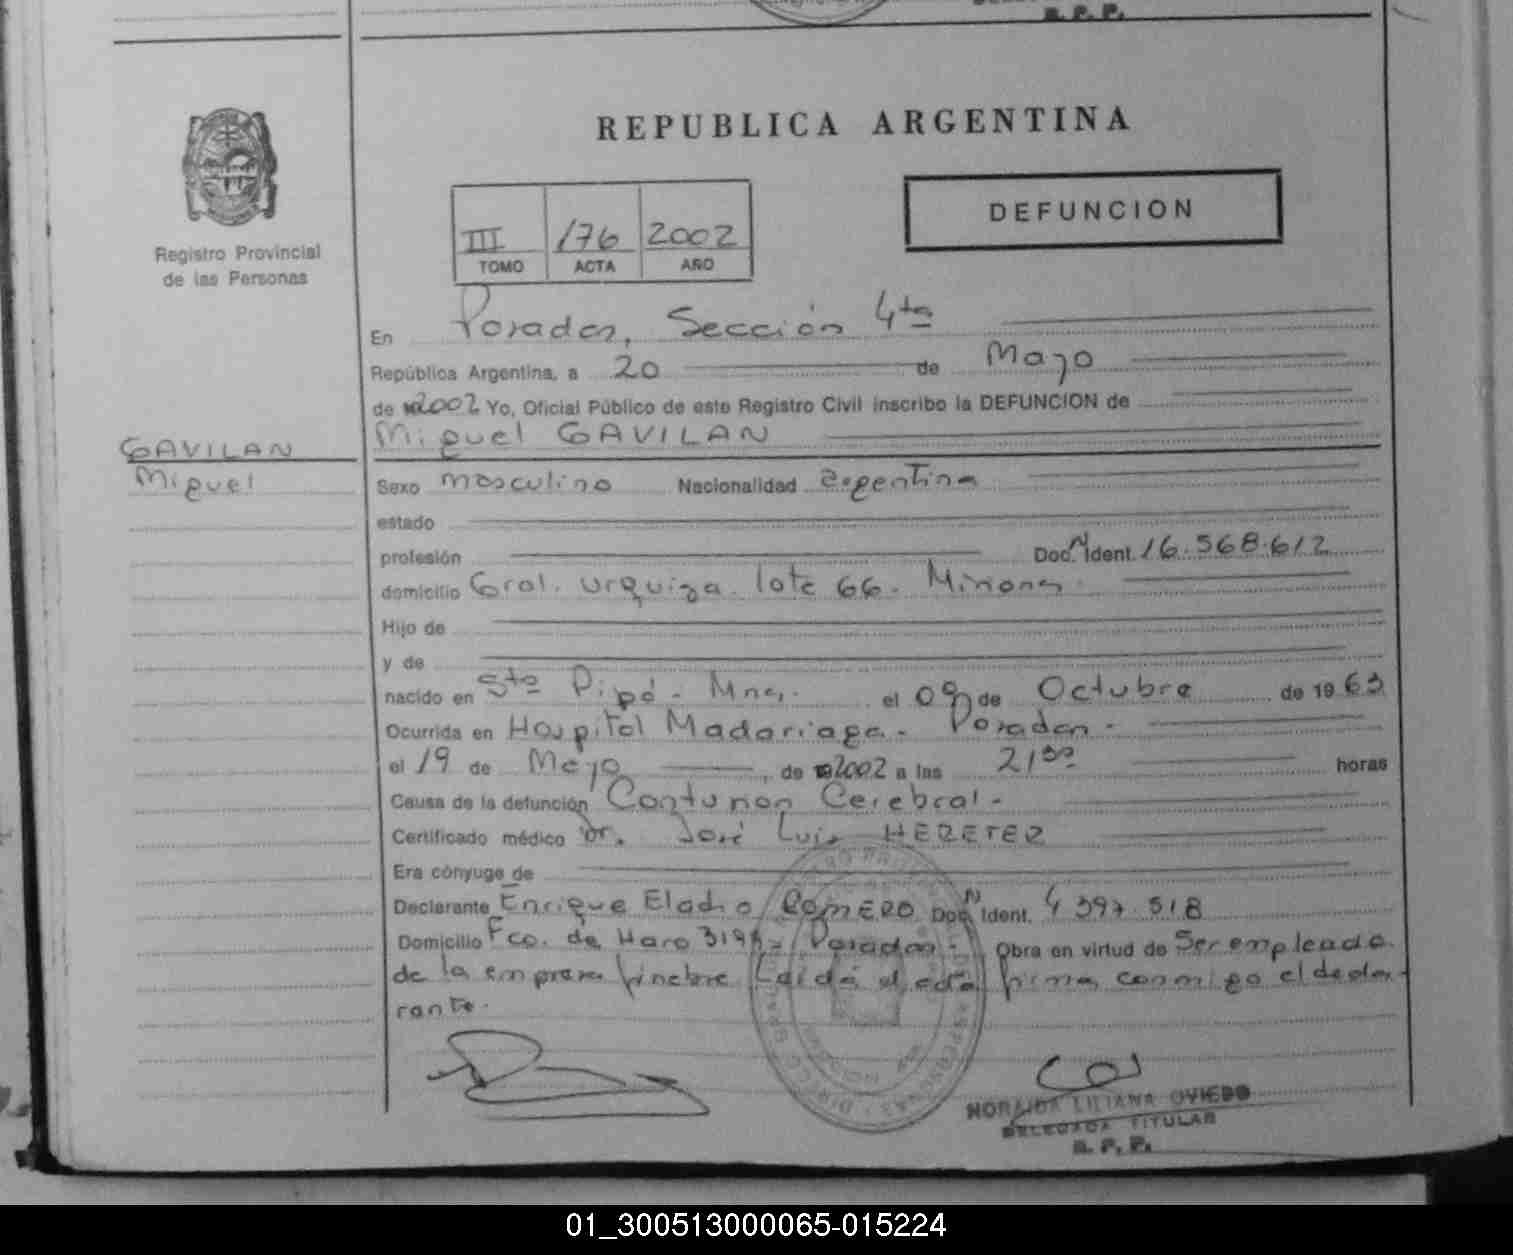 R. P. P.
REPUBLICA ARGENTINA
DEFUNCION
III 176 2002
TOMO ACTA AÑO
Registro Provincial
de las Personas
En Posadas, Sección 4ta
República Argentina, a 20 de Mayo
de 2002 Yo, Oficial Público de este Registro Civil inscribo la DEFUNCION de
Miguel GAVILAN
GAVILAN
Miguel
Sexo masculino Nacionalidad argentina
estado
profesión Doc. N Ident. 16.568.612
domicilio Gral. Urquiza. lote 66. Misiones.
Hijo de
y de
nacido en Sto Pipó - Mnes. el 09 de Octubre de 1963
Ocurrida en Hospital Madariaga - Posadas -
el 19 de Mayo, de 2002 a las 21 horas
Causa de la defunción Contusion Cerebral -
Certificado médico Dr. José Luis HERETER
Era cónyuge de
Declarante Enrique Eladio ROMERO Doc. N Ident. 4 397 518
Domicilio Fco. de Haro Posadas - Obra en virtud de Ser empleado
de la empresa fúnebre Leída el acta firma conmigo el decla-
rante.
NORAIDA LILIANA OVIEDO
DELEGADA TITULAR
R. P. P.
01_300513000065-015224